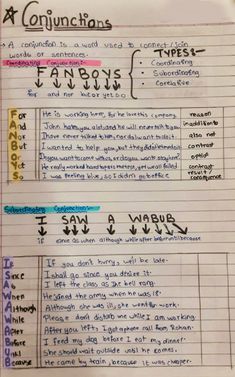 Conjunctions
A conjunction is a word used to connect/join
words or sentences.
TYPES:-
• Coordinating
• Subordinating
• Corelative
Coordinating Conjunction:-
FANBOYS
for and nor but or yet so
For He is working here, for he loves this company. reason
And John hates you and he will never talk to you inaddition to
Nor I have never talked to him, nor do I want to. also not
But I wanted to help you, but they didn't contrast
Or you want to come with us, or do you want to stay here option
Yet He really worked hard, yet he failed contrast
So I was feeling blue, so I didn't go office. result/
consequence
Subordinating Conjunction:-
I SAW A WABUB
if since as when although while after before until because
If If you don't hurry, we'll be late.
Since I shall go since you desire it.
As I left the class as the bell rang.
When He joined the army when he was 18.
Although Although she was ill, she went for work.
While Please don't disturb me while I am working
After After you left, I got a phone call from Rohan.
Before I feed my dog before I eat my dinner.
Until She should wait outside until he comes.
Because He came by train, because it was cheaper.